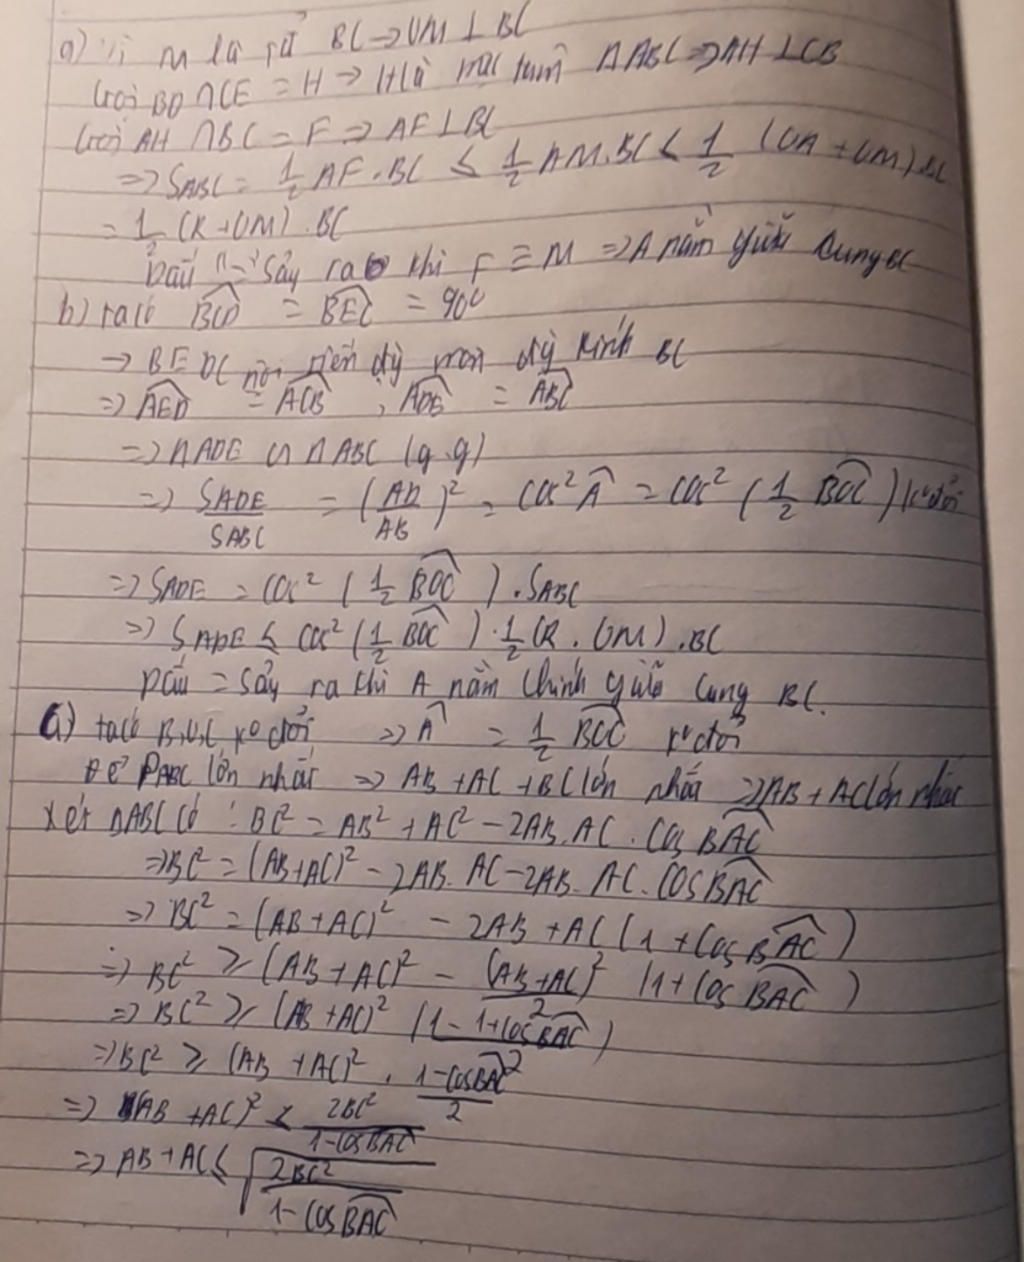 a) Vì M là từ BC → OM ⊥ BC
Gọi BD ∩ CE = H → H là trực tâm △ABC ⇒ AH ⊥ CB
Gọi AH ∩ BC = F ⇒ AF ⊥ BC
⇒ S_ABC = 1/2 AF . BC ≤ 1/2 AM.BC ≤ 1/2 (OA + OM) BC
= 1/2 (R + OM) . BC
Dấu "=" sảy ra khi F ≡ M ⇒ A nằm giữa cung BC
b) ta có BCD = BEC = 90°
→ BEDC nội tiếp đg tròn đg kính BC
⇒ AED = ACB , ADE = ABC
⇒ △ADE ∽ △ABC (g.g)
⇒ S_ADE/S_ABC = (AD/AB)² = cos² A = cos² (1/2 BOC) k° đổi
⇒ S_ADE = cos² (1/2 BOC) . S_ABC
⇒ S_ADE ≤ cos² (1/2 BOC) . 1/2 (R . OM) . BC
Dấu = sảy ra khi A nằm chính giữa cung BC.
a) ta có B,O,C k° đổi ⇒ A = 1/2 BOC k° đổi
Để P_ABC lớn nhất ⇒ AB + AC + BC lớn nhất ⇒ AB + AC lớn nhất
Xét △ABC có : BC² = AB² + AC² - 2AB.AC . COS BAC
⇒ BC² = (AB+AC)² - 2AB. AC - 2AB. AC. COS BAC
⇒ BC² = (AB + AC)² - 2AB + AC (1 + cos BAC)
⇒ BC² ≥ (AB + AC)² - (AB+AC)²/2 (1 + cos BAC)
⇒ BC² ≥ (AB + AC)² (1 - 1+cos BAC/2)
⇒ BC² ≥ (AB + AC)² . 1-cos BAC/2
⇒ (AB + AC)² ≤ 2BC²/1-cos BAC
⇒ AB + AC ≤ √(2BC²/1-cos BAC)